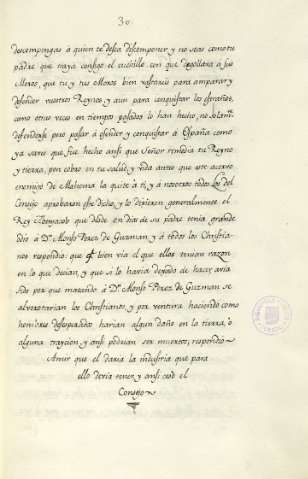 30
descompongas a quien te desea descomponer y no seas como tu
padre que traya consigo el cuchillo con que degollava a sus
Moros, que tu y tus Moros bien vastareis para amparar y
defender nuestros Reynos y aun para conquistar los estraños,
como otras veces en tiempos pasados lo han hecho, no solam.te
defendiendo pero pasar a ofender y conquistar a España como
ya saves que fue hecho ansi que Señor remedia tu Reyno
y tierra, pon cobro en tu salud y vida antes que este acerro
enemigo de Mahoma la quite a ti y a nosotros todos los del
Consejo aprobaron este dicho y lo dixeron generalmente el
Rey Abenjacob que desde en dias de su padre tenia grande
odio à D.n Alonso Perez de Guzman y à todos los Christia-
nos respondio: que bien via el que ellos tenian razon
en lo que decian, y que si lo havia dejado de hacer avia
sido por que matando à D.n Alonso Perez de Guzman se
alvorotarian los Christianos y por ventura haciendo como
hombres desesperados harian algun daño en la tierra, ò
alguna traycion y ansi podrian ser muertos, respondio
Amir que el daria la industria que para
ello devia tener y ansi cesó el
Consejo